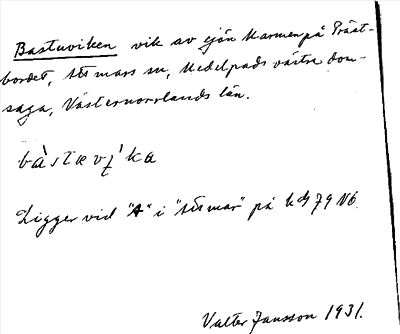 Bastuviken vik av sjön Marmen på Präst-
bordet, Attmars sn, Medelpads västra dom-
saga, Västernorrlands län.
Ligger vid "A" i "Attmar" på kbl 79 N6.
Valter Jansson 1931.